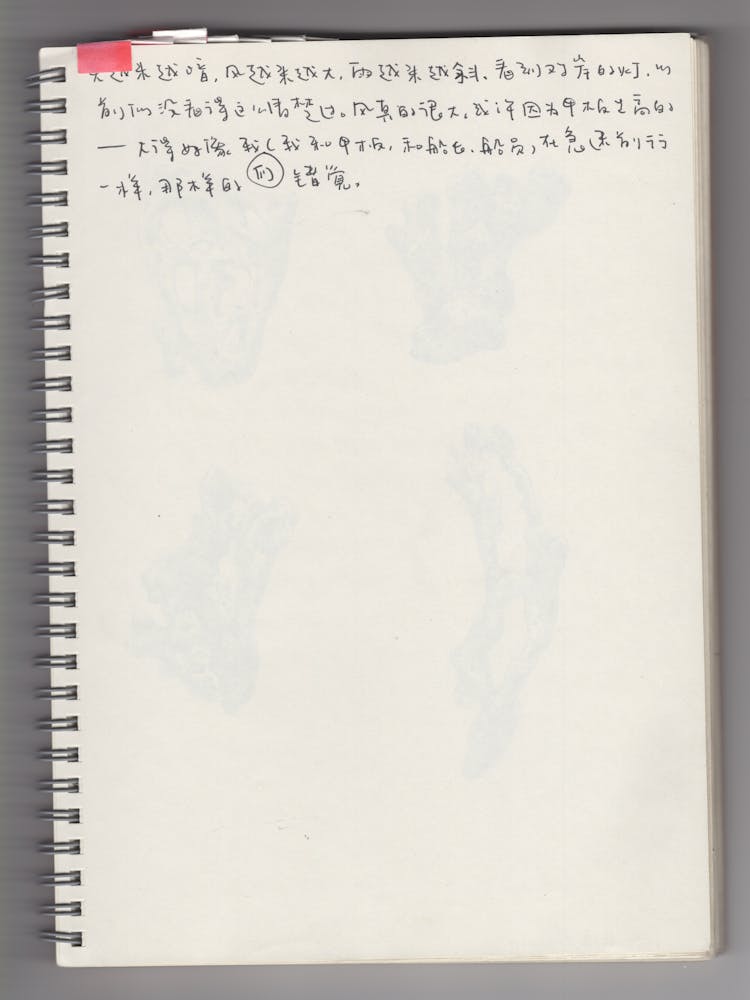 天越来越暗，风越来越大，雨越来越斜、看到对岸的灯，以
前从没看得这么清楚过。风真的很大，或许因为甲板是高的
— 大得好像我（我和甲板，和船长、船员）在急速前行
一样，那样的 们 错觉。